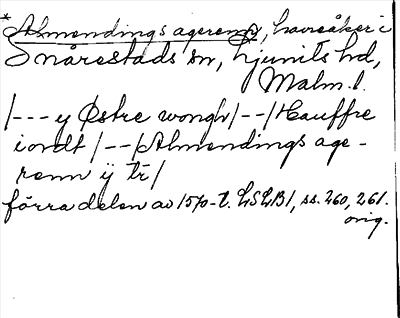 * Almendings agerenn, havreåker i
Snårestads sn, Ljunits hd,
Malm. l.
/--- y Østre wongh/--/Hauffre
iordt/--/Almendings age-
renn ÿ tr/
förra delen av 1570-t. LSLB1, ss. 260, 261.
orig.